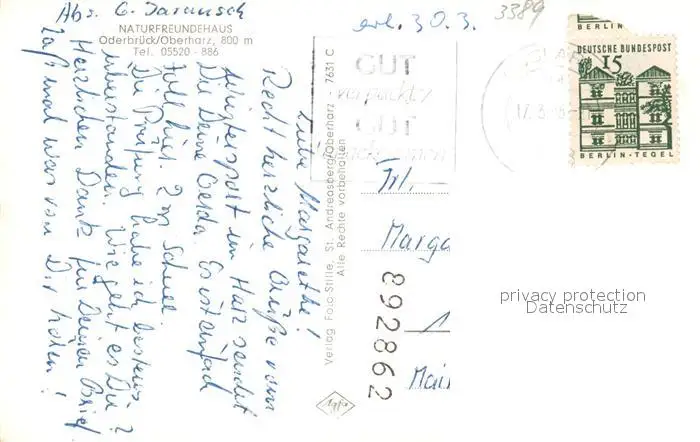 Abs. G. Jarausch
NATURFREUNDEHAUS
Oderbrück/Oberharz, 800 m
Tel. 05520 - 886
Liebe Margarethe!
Recht herzliche Grüße vom
Wintersport im Harz sendet
Dir Deine Gerda. Es ist einfach
toll hier. 2 m Schnee.
Die Prüfung habe ich bestens
überstanden. Wie geht es Dir?
Herzlichen Dank für Deinen Brief
Laß mal was von Dir hören!
Verlag Foto-Stille, St. Andreasberg/Oberharz 7631 C
Alle Rechte vorbehalten
Agfa
erl. 30.3.
3389
GUT
verpackt
GUT
17.3.
BERLIN
DEUTSCHE BUNDESPOST
15
BERLIN-TEGEL
Frl.
Marga
Mai
892862
privacy protection
Datenschutz